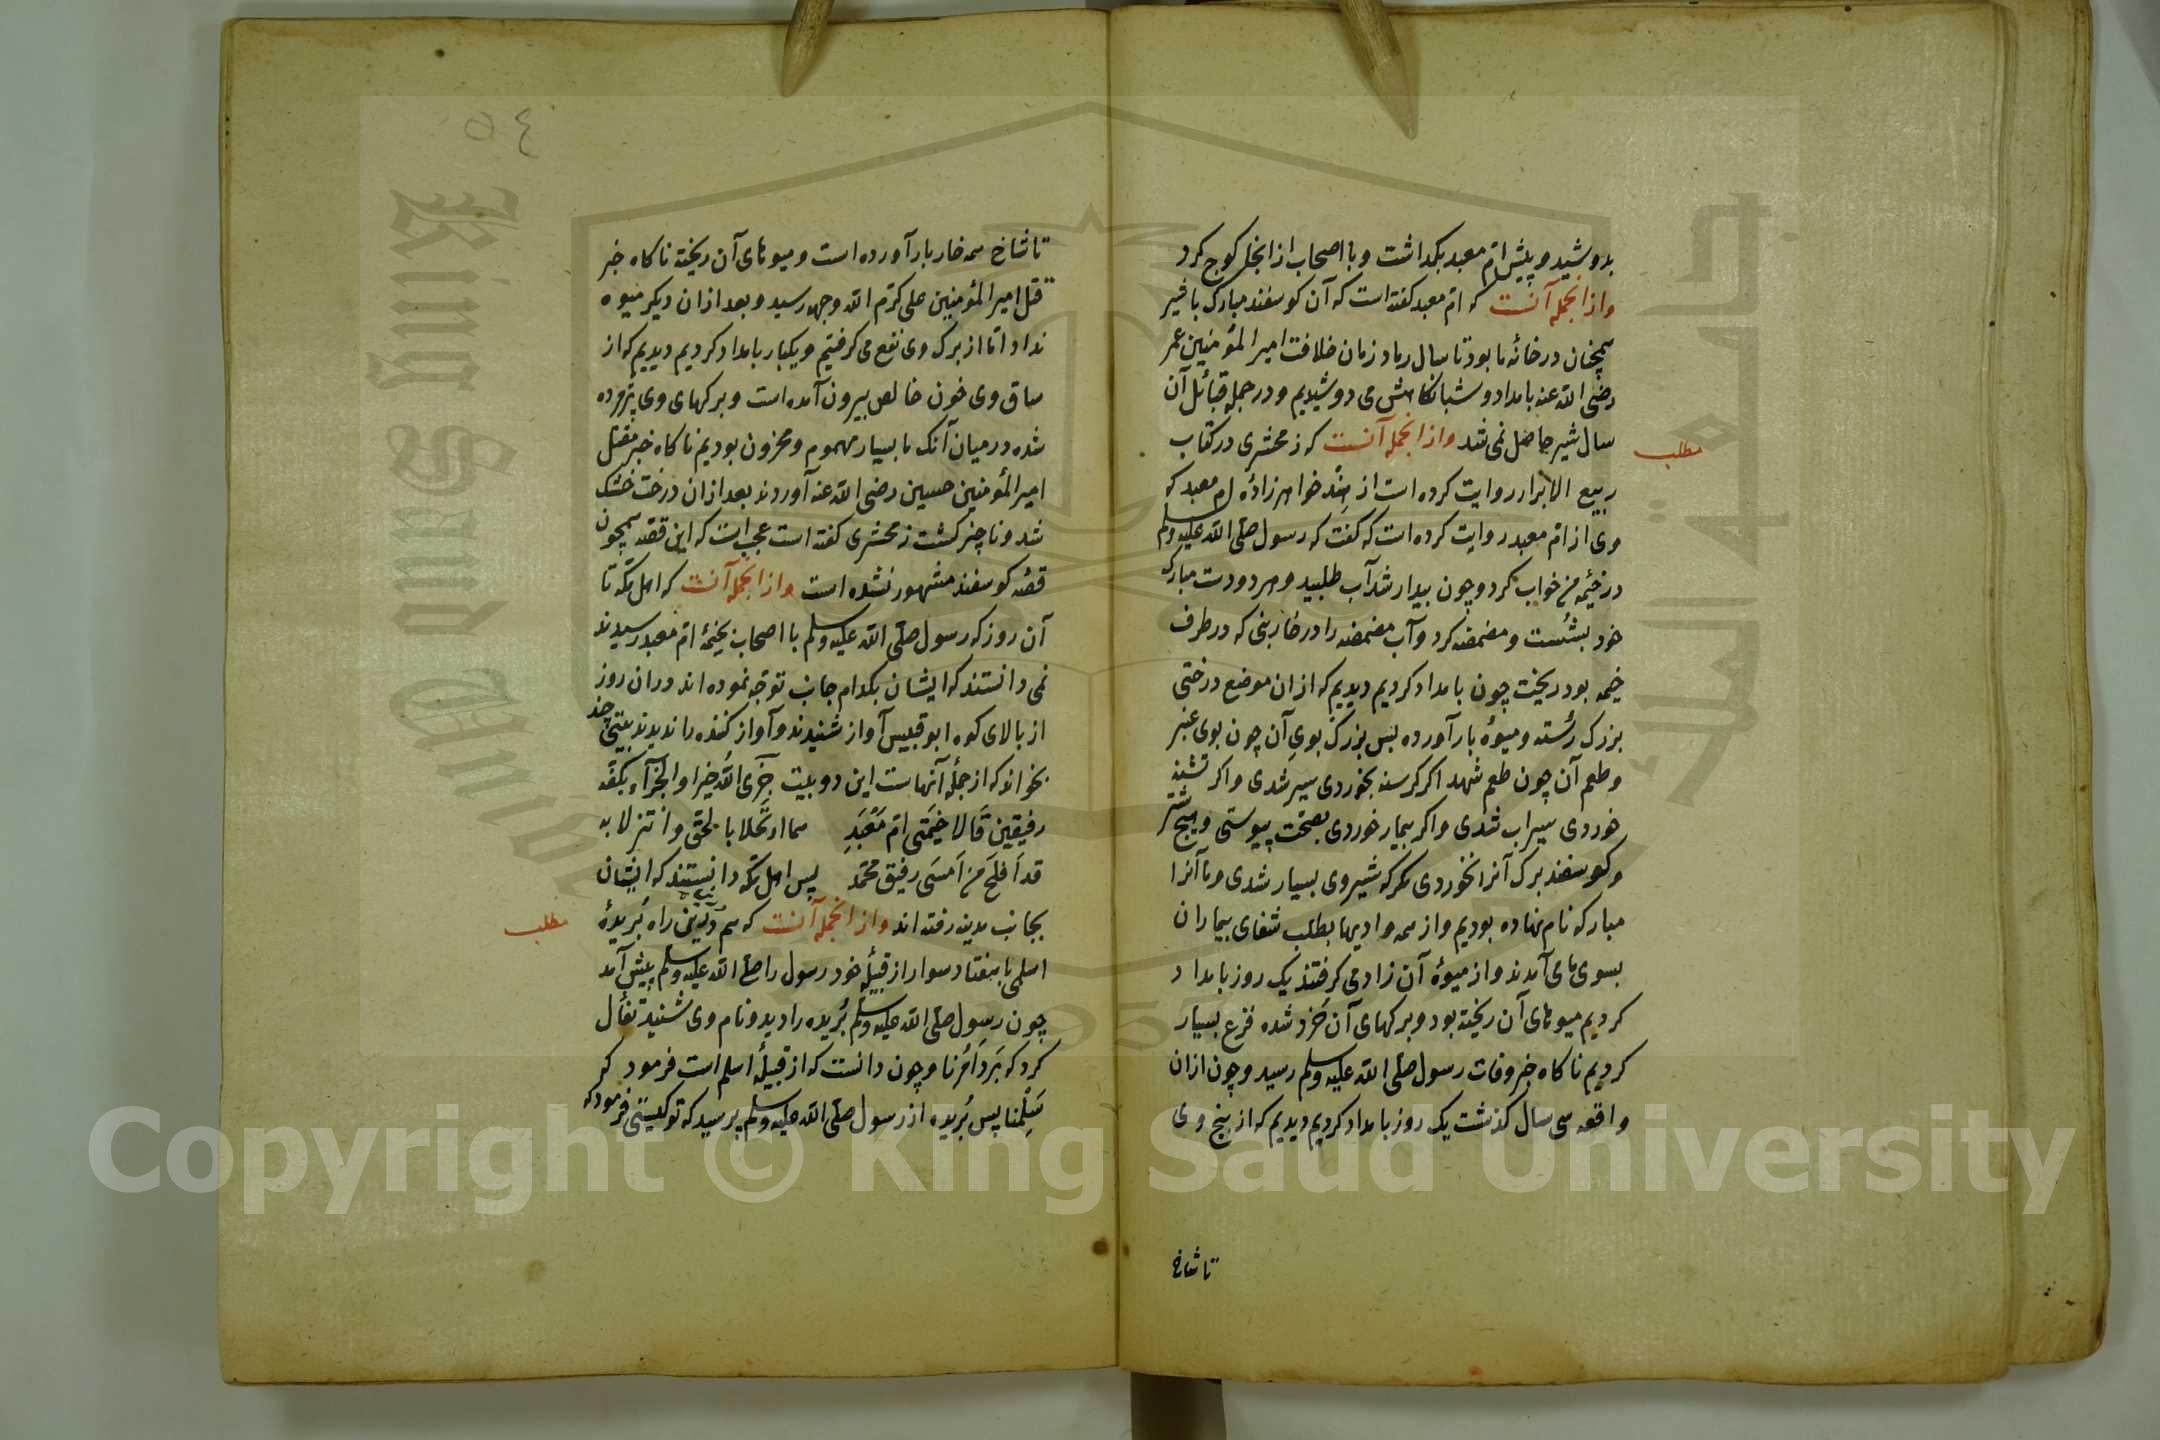 بدوشید و پیش ام معبد بگذاشت و با اصحاب از انجا کوچ کرد
و از انجمله آنست که ام معبد کفته است که آن کوسفند مبارک با شیر
همچنان در خانهٔ ما بود تا سال رماد زمان خلافت امیر المؤمنین عمر
رضی الله عنه بامداد و شبانکاهش می دوشیدیم و در جمله قبائل آن
سال شیر حاصل نمی شد و از انجمله آنست که زمخشری در کتاب
مطلب
ربیع الابرار روایت کرده است از هند خواهرزادهٔ ام معبد که
وی از ام معبد روایت کرده است که کفت که رسول صلی الله علیه وسلم
در خیمهٔ من خواب کرد و چون بیدار شد آب طلبید و هر دو دست مبارک
خود بشست و مضمضه کرد و آب مضمضه را در خاربنی که در طرف
خیمه بود ریخت چون بامداد کردیم دیدیم که از ان موضع درختی
بزرک رسته و میوهٔ بار آورده بس بزرک بوی آن چون بوی عنبر
و طعم آن چون طعم شهد اکر کرسنه بخوردی سیر شدی و اکر تشنه
خوردی سیراب شدی و اکر بیمار خوردی بصحت پیوستی و هیچ شتر
و کوسفند برک آنرا نخوردی مکر که شیر وی بسیار شدی و ما آنرا
مبارکه نام نهاده بودیم و از همه وادیها بطلب شفای بیماران
بسوی ما می آمدند و از میوهٔ آن زاد می کرفتند یک روز بامداد
کردیم میوهای آن ریخته بود و برکهای آن خرد شده فزع بسیار
کردیم ناکاه خبر وفات رسول صلی الله علیه وسلم رسید و چون از ان
واقعه سی سال کذشت یک روز بامداد کردیم دیدیم که از بیخ وی
تا شاخ
٥٤
تا شاخ همه خار بار آورده است و میوهای آن ریخته ناکاه خبر
قتل امیر المؤمنین علی کرم الله وجهه رسید و بعد از ان دیکر میوه
نداد اما از برک وی نفع می کرفتیم و یکبار بامداد کردیم دیدیم که از
ساق وی خون خالص بیرون آمده است و برکهای وی پژمرده
شده در میان آنک ما بسیار مهموم و محزون بودیم ناکاه خبر مقتل
امیر المؤمنین حسین رضی الله عنه آوردند بعد از ان درخت خشک
شد و ناچیز کشت زمخشری کفته است عجب است که این قصه همچون
قصهٔ کوسفند مشهور نشده است و از انجمله آنست که اهل مکه تا
آن روز که رسول صلی الله علیه وسلم با اصحاب بخیمهٔ ام معبد رسیدند
نمی دانستند که ایشان بکدام جانب توجه نموده اند در ان روز
از بالای کوه ابو قبیس آواز شنیدند و آواز کننده را ندیدند بیتی چند
بخواند که از جملهٔ آنهاست این دو بیت جزی الله خیرا والجزاء بکفه
رفیقین قالا خیمتی ام معبد هما ارتحلا بالحق وانتزلا به
قد افلح من امسی رفیق محمد پس اهل مکه دانستند که ایشان
بجانب مدینه رفته اند و از انجمله آنست که هم در ین راه بریدهٔ
مطلب
اسلمی با هفتاد سوار از قبیلهٔ خود رسول را صلی الله علیه وسلم پیش آمد
چون رسول صلی الله علیه وسلم بریده را دید و نام وی شنید تفأل
کرد که برد امرنا و چون دانست که از قبیلهٔ اسلم است فرمود که
سلمنا پس بریده از رسول صلی الله علیه وسلم پرسید که تو کیستی فرمود که
Copyright © King Saud University